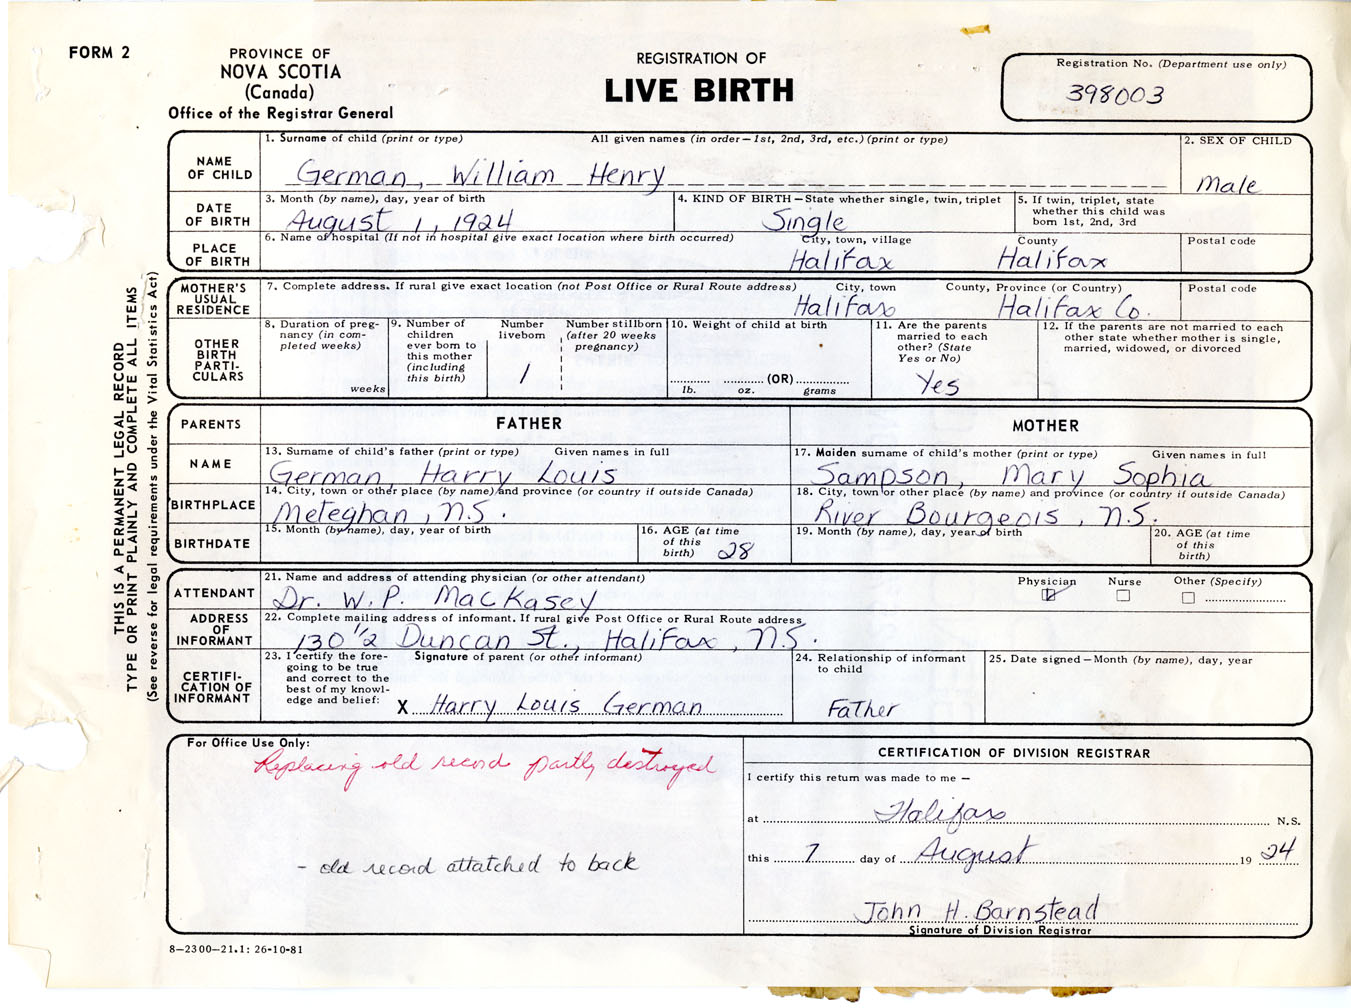 FORM 2
PROVINCE OF
NOVA SCOTIA
(Canada)
Office of the Registrar General
REGISTRATION OF
LIVE BIRTH
Registration No. (Department use only)
398003
THIS IS A PERMANENT LEGAL RECORD
TYPE OR PRINT PLAINLY AND COMPLETE ALL ITEMS
(See reverse for legal requirements under the Vital Statistics Act)
NAME
OF CHILD
1. Surname of child (print or type) All given names (in order—1st, 2nd, 3rd, etc.) (print or type)
German, William Henry
2. SEX OF CHILD
Male
DATE
OF BIRTH
3. Month (by name), day, year of birth
August 1, 1924
4. KIND OF BIRTH—State whether single, twin, triplet
Single
5. If twin, triplet, state
whether this child was
born 1st, 2nd, 3rd
PLACE
OF BIRTH
6. Name of hospital (If not in hospital give exact location where birth occurred) City, town, village County
Halifax Halifax
Postal code
MOTHER'S
USUAL
RESIDENCE
7. Complete address. If rural give exact location (not Post Office or Rural Route address) City, town County, Province (or Country)
Halifax Halifax Co.
Postal code
OTHER
BIRTH
PARTI-
CULARS
8. Duration of preg-
nancy (in com-
pleted weeks)
weeks
9. Number of
children
ever born to
this mother
(including
this birth)
Number
liveborn
1
Number stillborn
(after 20 weeks
pregnancy)
10. Weight of child at birth
.......... .......... (OR)..............
lb. oz. grams
11. Are the parents
married to each
other? (State
Yes or No)
Yes
12. If the parents are not married to each
other state whether mother is single,
married, widowed, or divorced
PARENTS
FATHER
MOTHER
NAME
13. Surname of child's father (print or type) Given names in full
German, Harry Louis
17. Maiden surname of child's mother (print or type) Given names in full
Sampson, Mary Sophia
BIRTHPLACE
14. City, town or other place (by name) and province (or country if outside Canada)
Meteghan, N.S.
18. City, town or other place (by name) and province (or country if outside Canada)
River Bourgeois, N.S.
BIRTHDATE
15. Month (by name), day, year of birth
16. AGE (at time
of this
birth) 28
19. Month (by name), day, year of birth
20. AGE (at time
of this
birth)
ATTENDANT
21. Name and address of attending physician (or other attendant)
Dr. W. P. MacKasey
Physician Nurse Other (Specify)
ADDRESS
OF
INFORMANT
22. Complete mailing address of informant. If rural give Post Office or Rural Route address
130 1/2 Duncan St., Halifax, N.S.
CERTIFI-
CATION OF
INFORMANT
23. I certify the fore-
going to be true
and correct to the
best of my knowl-
edge and belief:
Signature of parent (or other informant)
X Harry Louis German
24. Relationship of informant
to child
Father
25. Date signed—Month (by name), day, year
For Office Use Only:
Replacing old record partly destroyed
- old record attatched to back
CERTIFICATION OF DIVISION REGISTRAR
I certify this return was made to me —
at Halifax N.S.
this 7 day of August 19 24
John H. Barnstead
Signature of Division Registrar
8—2300—21.1: 26-10-81